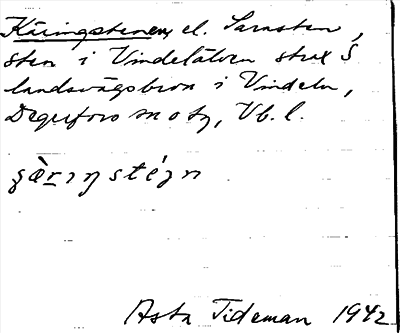 Käringstenen, el. Sarasten,
sten i Vindelälven strax S
landsvägsbron i Vindeln,
Degerfors m o tg, Vb. l.
ʂæ̀rɪŋstéɲn
Asta Tideman 1942